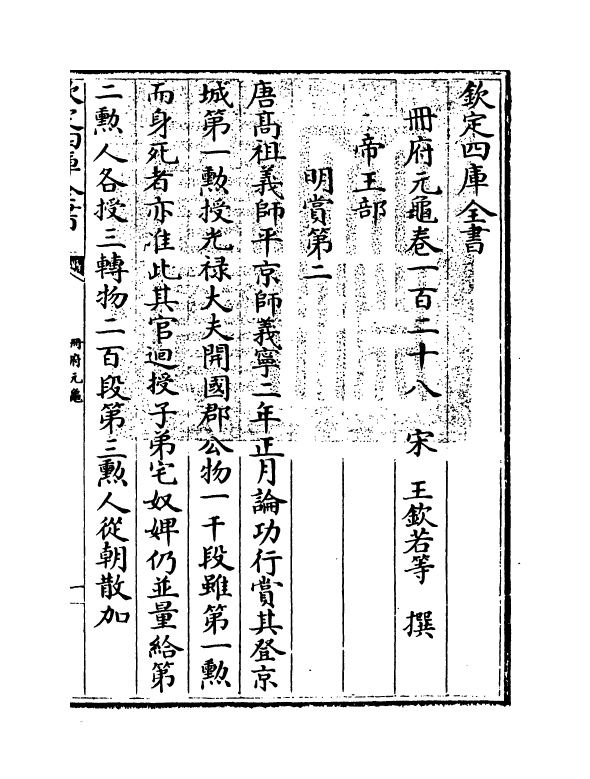 欽定四庫全書
冊府元龜卷一百二十八 宋 王欽若等 撰
帝王部
明賞第二
唐髙祖義師平京師義寧二年正月論功行賞其登京
城第一勲授光禄大夫開國郡公物一千段雖第一勲
而身死者亦准此其官迴授子弟宅奴婢仍並量給第
二勲人各授三轉物二百段第三勲人從朝散加
欽定四庫全書
冊府元龜